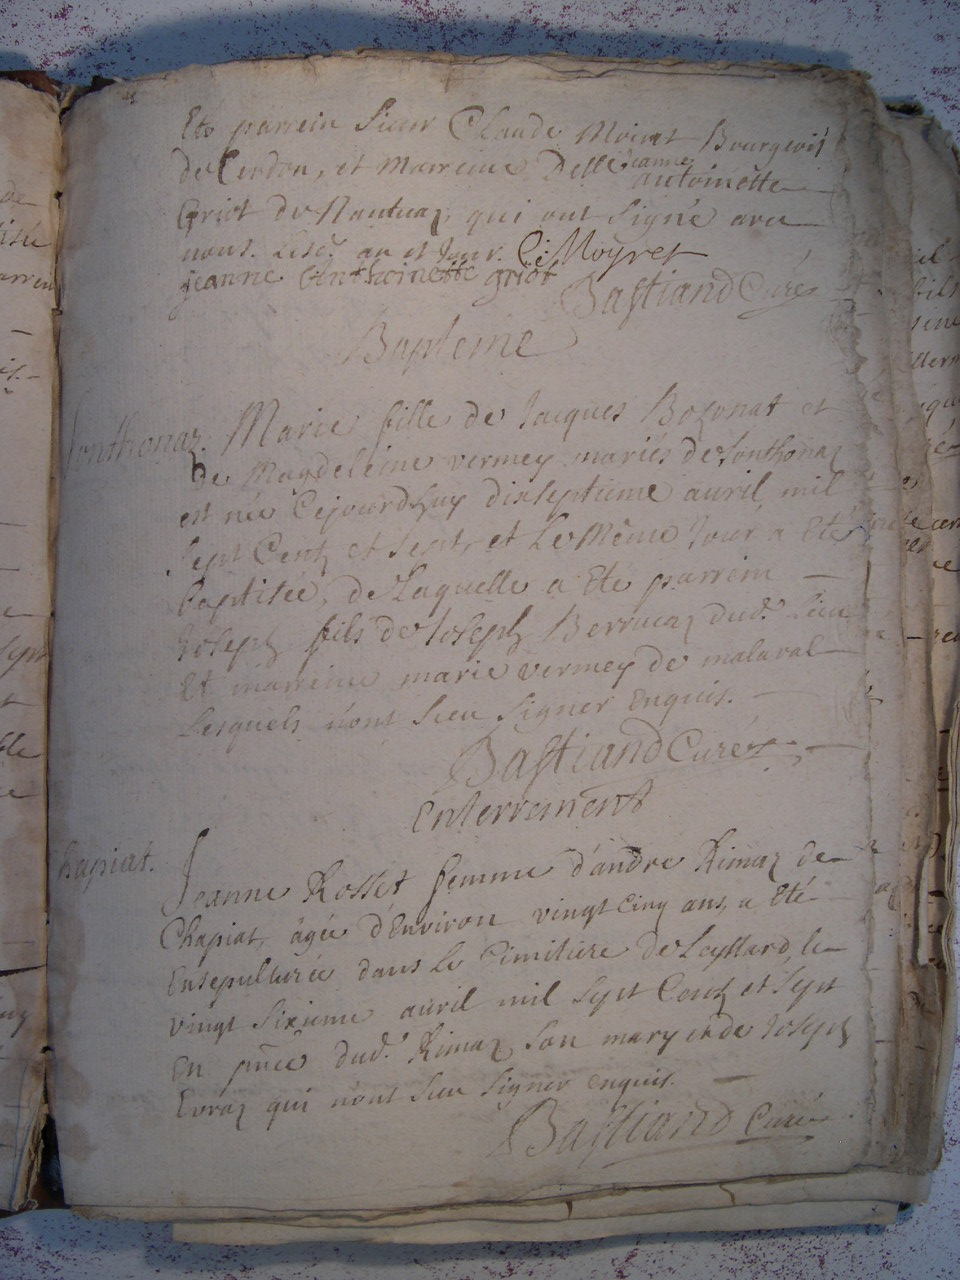 Eté parrein sieur Claude Moiret Bourgeois
de Cerdon, et Marreine Delle jeanne
antoinette
Griot de Nantuaz qui ont signé avec
nous. Lesd. an et jour. C: Moyret
jeanne anthoinette griot
Bastiand Curé
Bapteme
Sonthonaz. Marie fille de Jacques Bozonat et
de Magdeleine vermey mariés de Sonthonaz
est née Cejourdhuy dixseptieme auril mil
sept Centz et sept, et Le Même Jour a Eté
baptisée, de Laquelle a Ete parrein
Joseph fils de Joseph Berrucaz dud. Lieu
Et marreine marie vermey de malaval
Lesquels n'ont sceu signer Enquis.
Bastiand Curé
Enterrement
Chapiat. Jeanne Rosset femme d'andre Rimaz de
Chapiat, âgée d'Environ vingt cinq ans, a Eté
Ensepulturée dans Le Cimitiere de Leyssard, le
vingt sixieme auril mil sept Centz et sept
En pnce dud. Rimaz son mary et de Joseph
Evraz qui n'ont sceu signer enquis.
Bastiand Curé